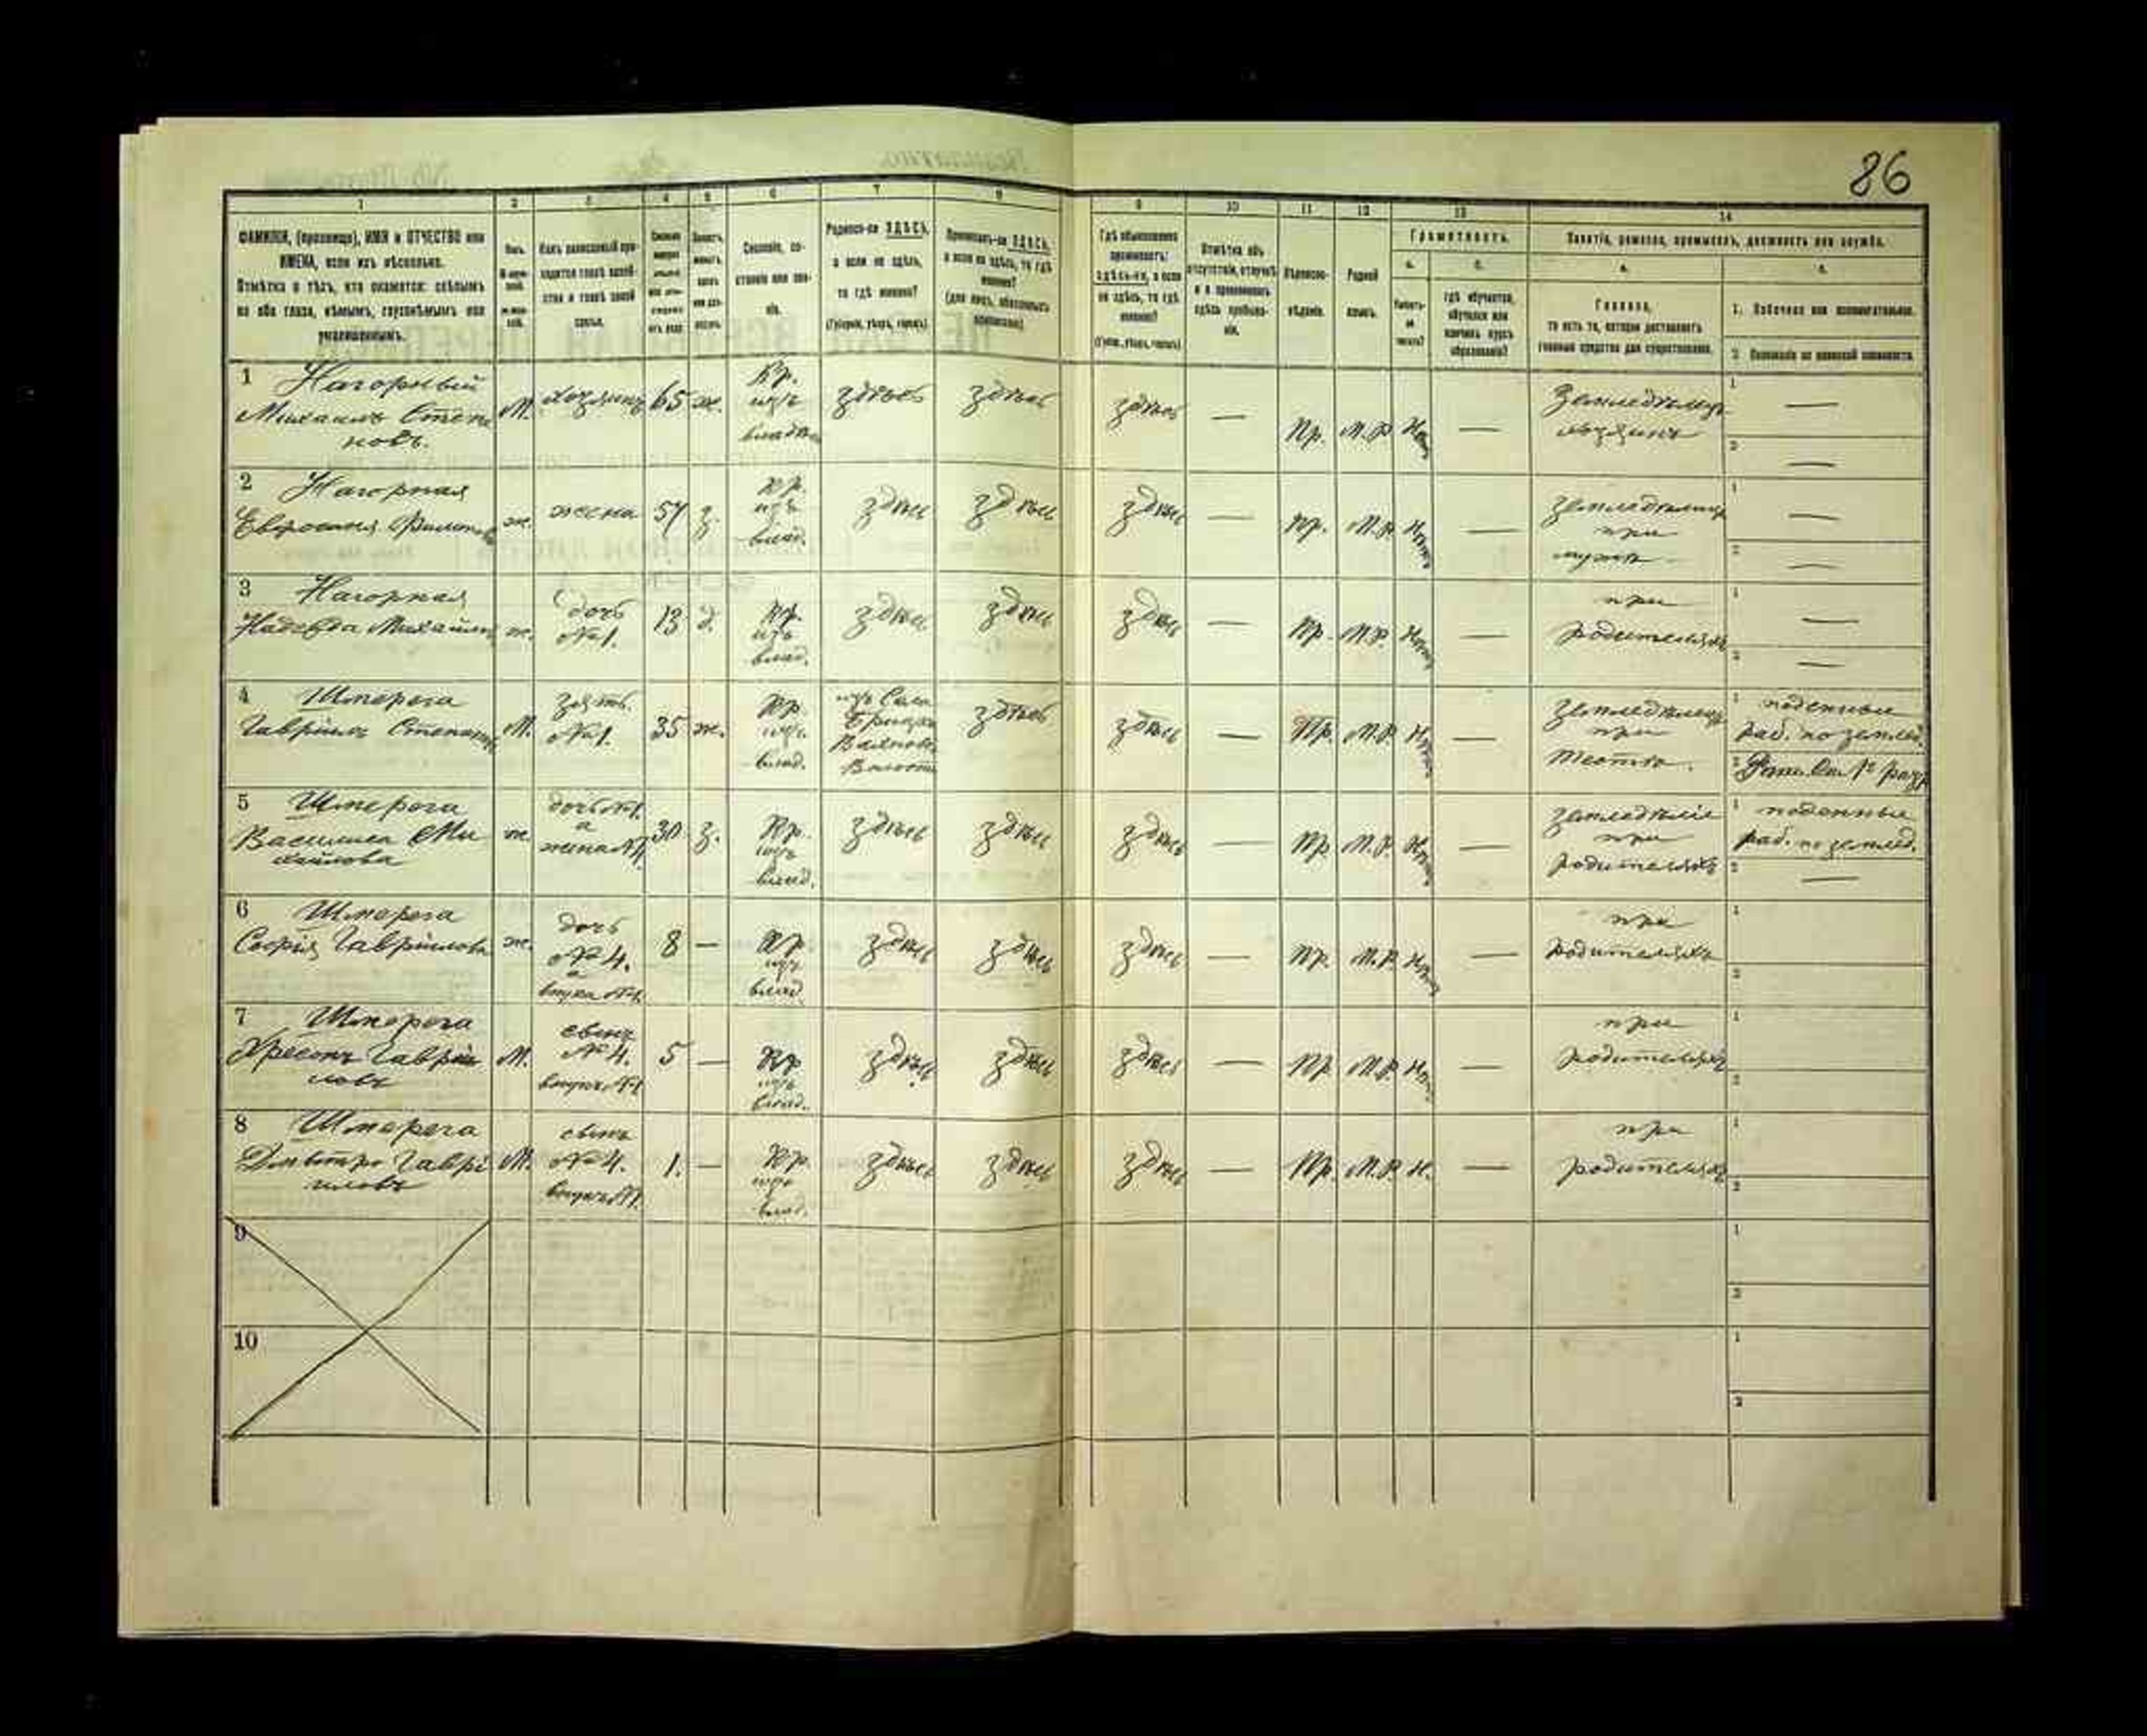 86
1 2 3 4 5 6 7 8 9 10 11 12 13 14
ФАМИЛІЯ, (прозвище), ИМЯ и ОТЧЕСТВО или
ИМЕНА, если ихъ нѣсколько.
Отмѣтка о тѣхъ, кто окажется: слѣпымъ
на оба глаза, нѣмымъ, глухонѣмымъ или
умалишеннымъ.
Полъ.
Какъ записанный при-
ходится главѣ хозяй-
ства и главѣ своей
семьи.
Сословіе, со-
стояніе или зва-
ніе.
Родился-ли ЗДѢСЬ,
а если не здѣсь,
то гдѣ именно?
(Губернія, уѣздъ, городъ)
Приписанъ-ли ЗДѢСЬ,
а если не здѣсь, то гдѣ
именно?
(для лицъ, обязанныхъ
припискою)
Гдѣ обыкновенно
проживаетъ:
здѣсь-ли, а если
не здѣсь, то гдѣ
именно?
(Губ., уѣздъ, городъ)
Отмѣтка объ
отсутствіи, отлучкѣ
и о временномъ
здѣсь пребыва-
ніи.
Вѣроиспо-
вѣданіе.
Родной
языкъ.
Грамотность.
а. б.
Умѣетъ-
ли
читать?
гдѣ обучается,
обучался или
кончилъ курсъ
образованія?
Занятіе, ремесло, промыселъ, должность или служба.
а. б.
Главное,
то есть то, которое доставляетъ
главныя средства для существованія.
1. Побочное или вспомогательное.
2. Положеніе по воинской повинности.
1 Нагорный
Михаилъ Степа
новъ.
М. хозяинъ 65 ж.
Кр.
изъ
владѣл
здѣсь здѣсь здѣсь — Пр. М.Р. Нѣтъ —
Земледѣлецъ
хозяинъ
1 —
2 —
2 Нагорная
Евфросинія
ж. жена 57 з.
Кр.
изъ
влад.
здѣсь здѣсь здѣсь — Пр. М.Р. Нѣтъ —
земледѣлица
при
мужѣ
1 —
2 —
3 Нагорная
Надежда Михайл
ж.
дочь
№1.
13 д.
Кр.
изъ
влад.
здѣсь здѣсь здѣсь — Пр. М.Р. Нѣтъ —
при
родителяхъ
1 —
2 —
4 Шперега
Гавріилъ Степанов
М.
зять
№1.
35 ж.
Кр.
изъ
влад.
изъ Села
Волости
здѣсь здѣсь — Пр. М.Р. Нѣтъ —
земледѣлецъ
при
тестѣ.
1 поденные
раб. по землед.
2 разр
5 Шперега
Василиса Ми
хайлова
ж.
дочь №1.
а
жена №4
30 з.
Кр.
изъ
влад.
здѣсь здѣсь здѣсь — Пр. М.Р. Нѣтъ —
земледѣліе
при
родителяхъ
1 поденные
раб. по землед.
2 —
6 Шперега
Софія Гавріилова
ж.
дочь
№4.
а
внука №1.
8 —
Кр
изъ
влад.
здѣсь здѣсь здѣсь — Пр. М.Р. Нѣтъ —
при
родителяхъ
1
2
7 Шперега
Хресонъ Гаврiи
ловъ
М.
сынъ
№4.
внукъ №1
5 —
Кр
изъ
влад.
здѣсь здѣсь здѣсь — Пр. М.Р. Нѣтъ —
при
родителяхъ
1
2
8 Шперега
Дмытро Гаврі
иловъ
М.
сынъ
№4.
внукъ №1.
1. —
Кр.
изъ
влад.
здѣсь здѣсь здѣсь — Пр. М.Р. Н. —
при
родителяхъ
1
2
9
1
2
10
1
2